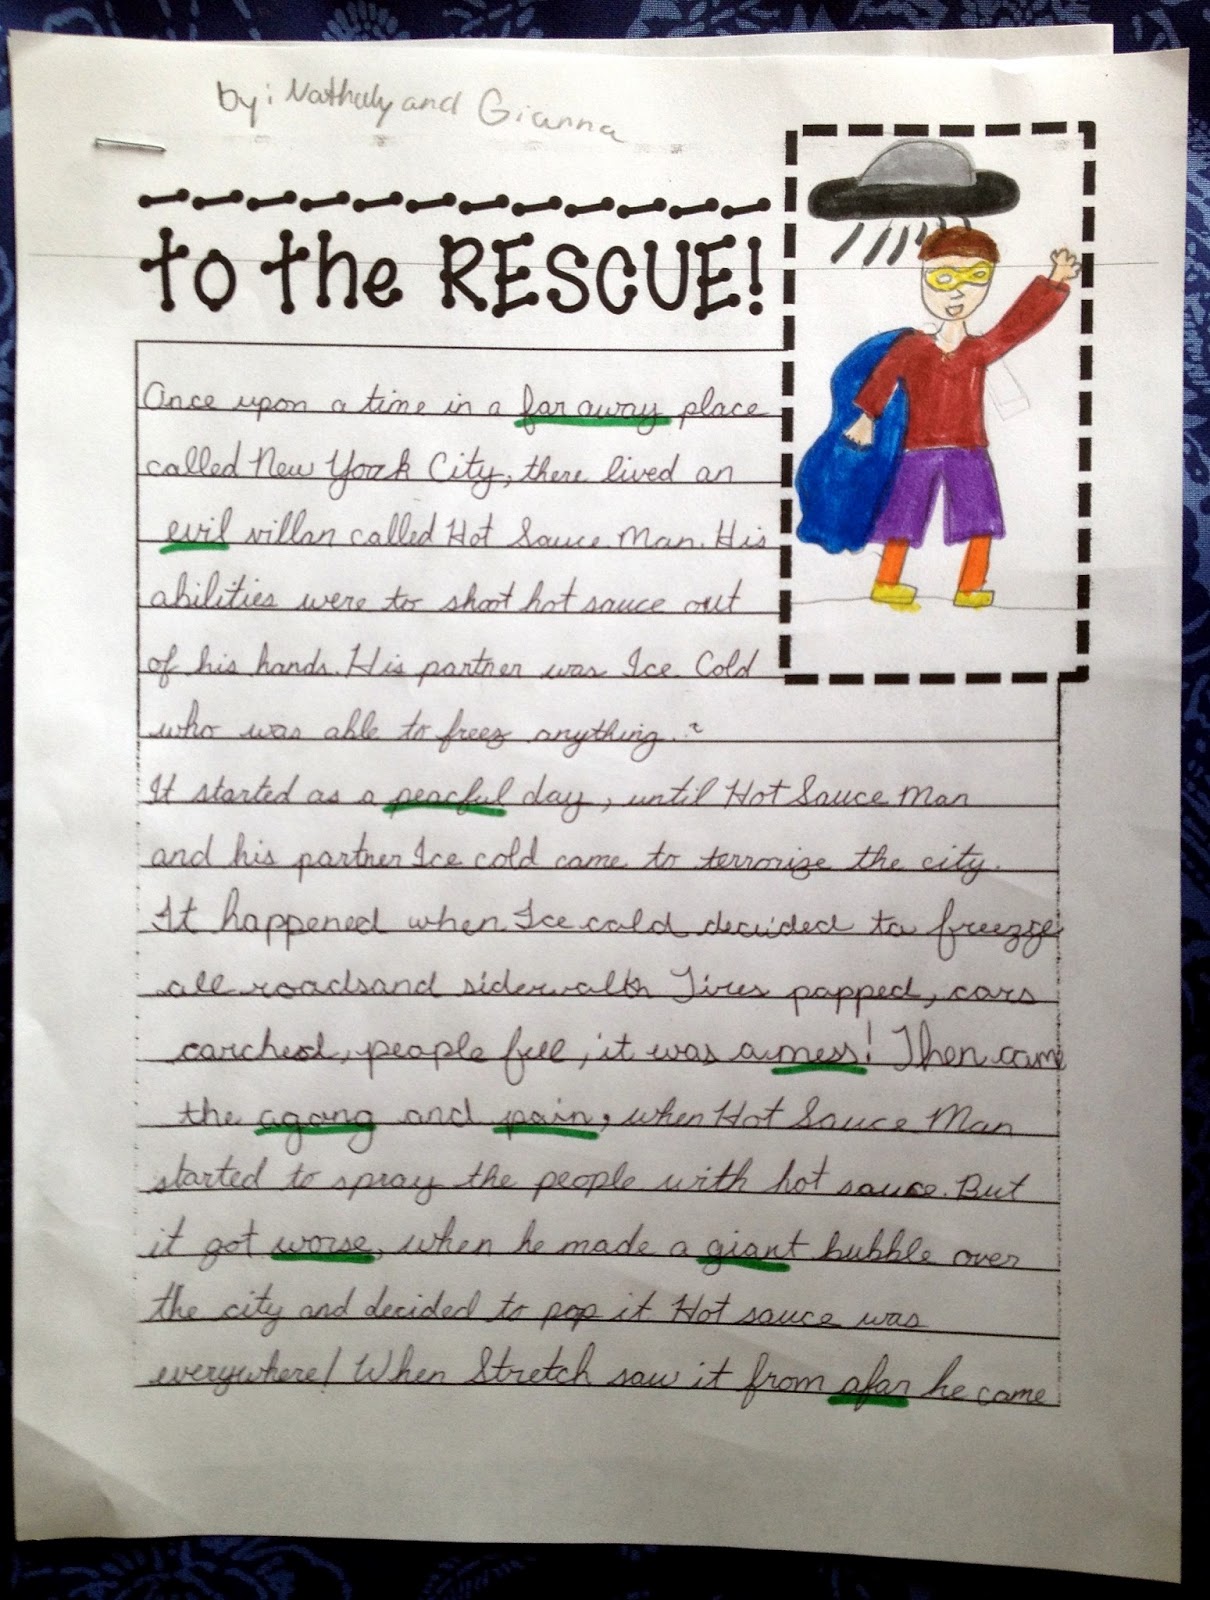 by: Nathaly and Gianna
to the RESCUE!
Once upon a time in a far away place
called New York City, there lived an
evil villan called Hot Sauce Man. His
abilities were to shoot hot sauce out
of his hands. His partner was Ice Cold
who was able to freez anything.
It started as a peacful day, until Hot Sauce Man
and his partner Ice cold came to terrorize the city.
It happened when Ice cold decided to freezge
all roads and siderwalk Tires popped, cars
carched, people fell, it was a mess! Then came
the agong and pain, when Hot Sauce Man
started to spray the people with hot sauce. But
it got worse, when he made a giant bubble over
the city and decided to pop it. Hot sauce was
everywhere! When Stretch saw it from afar he came